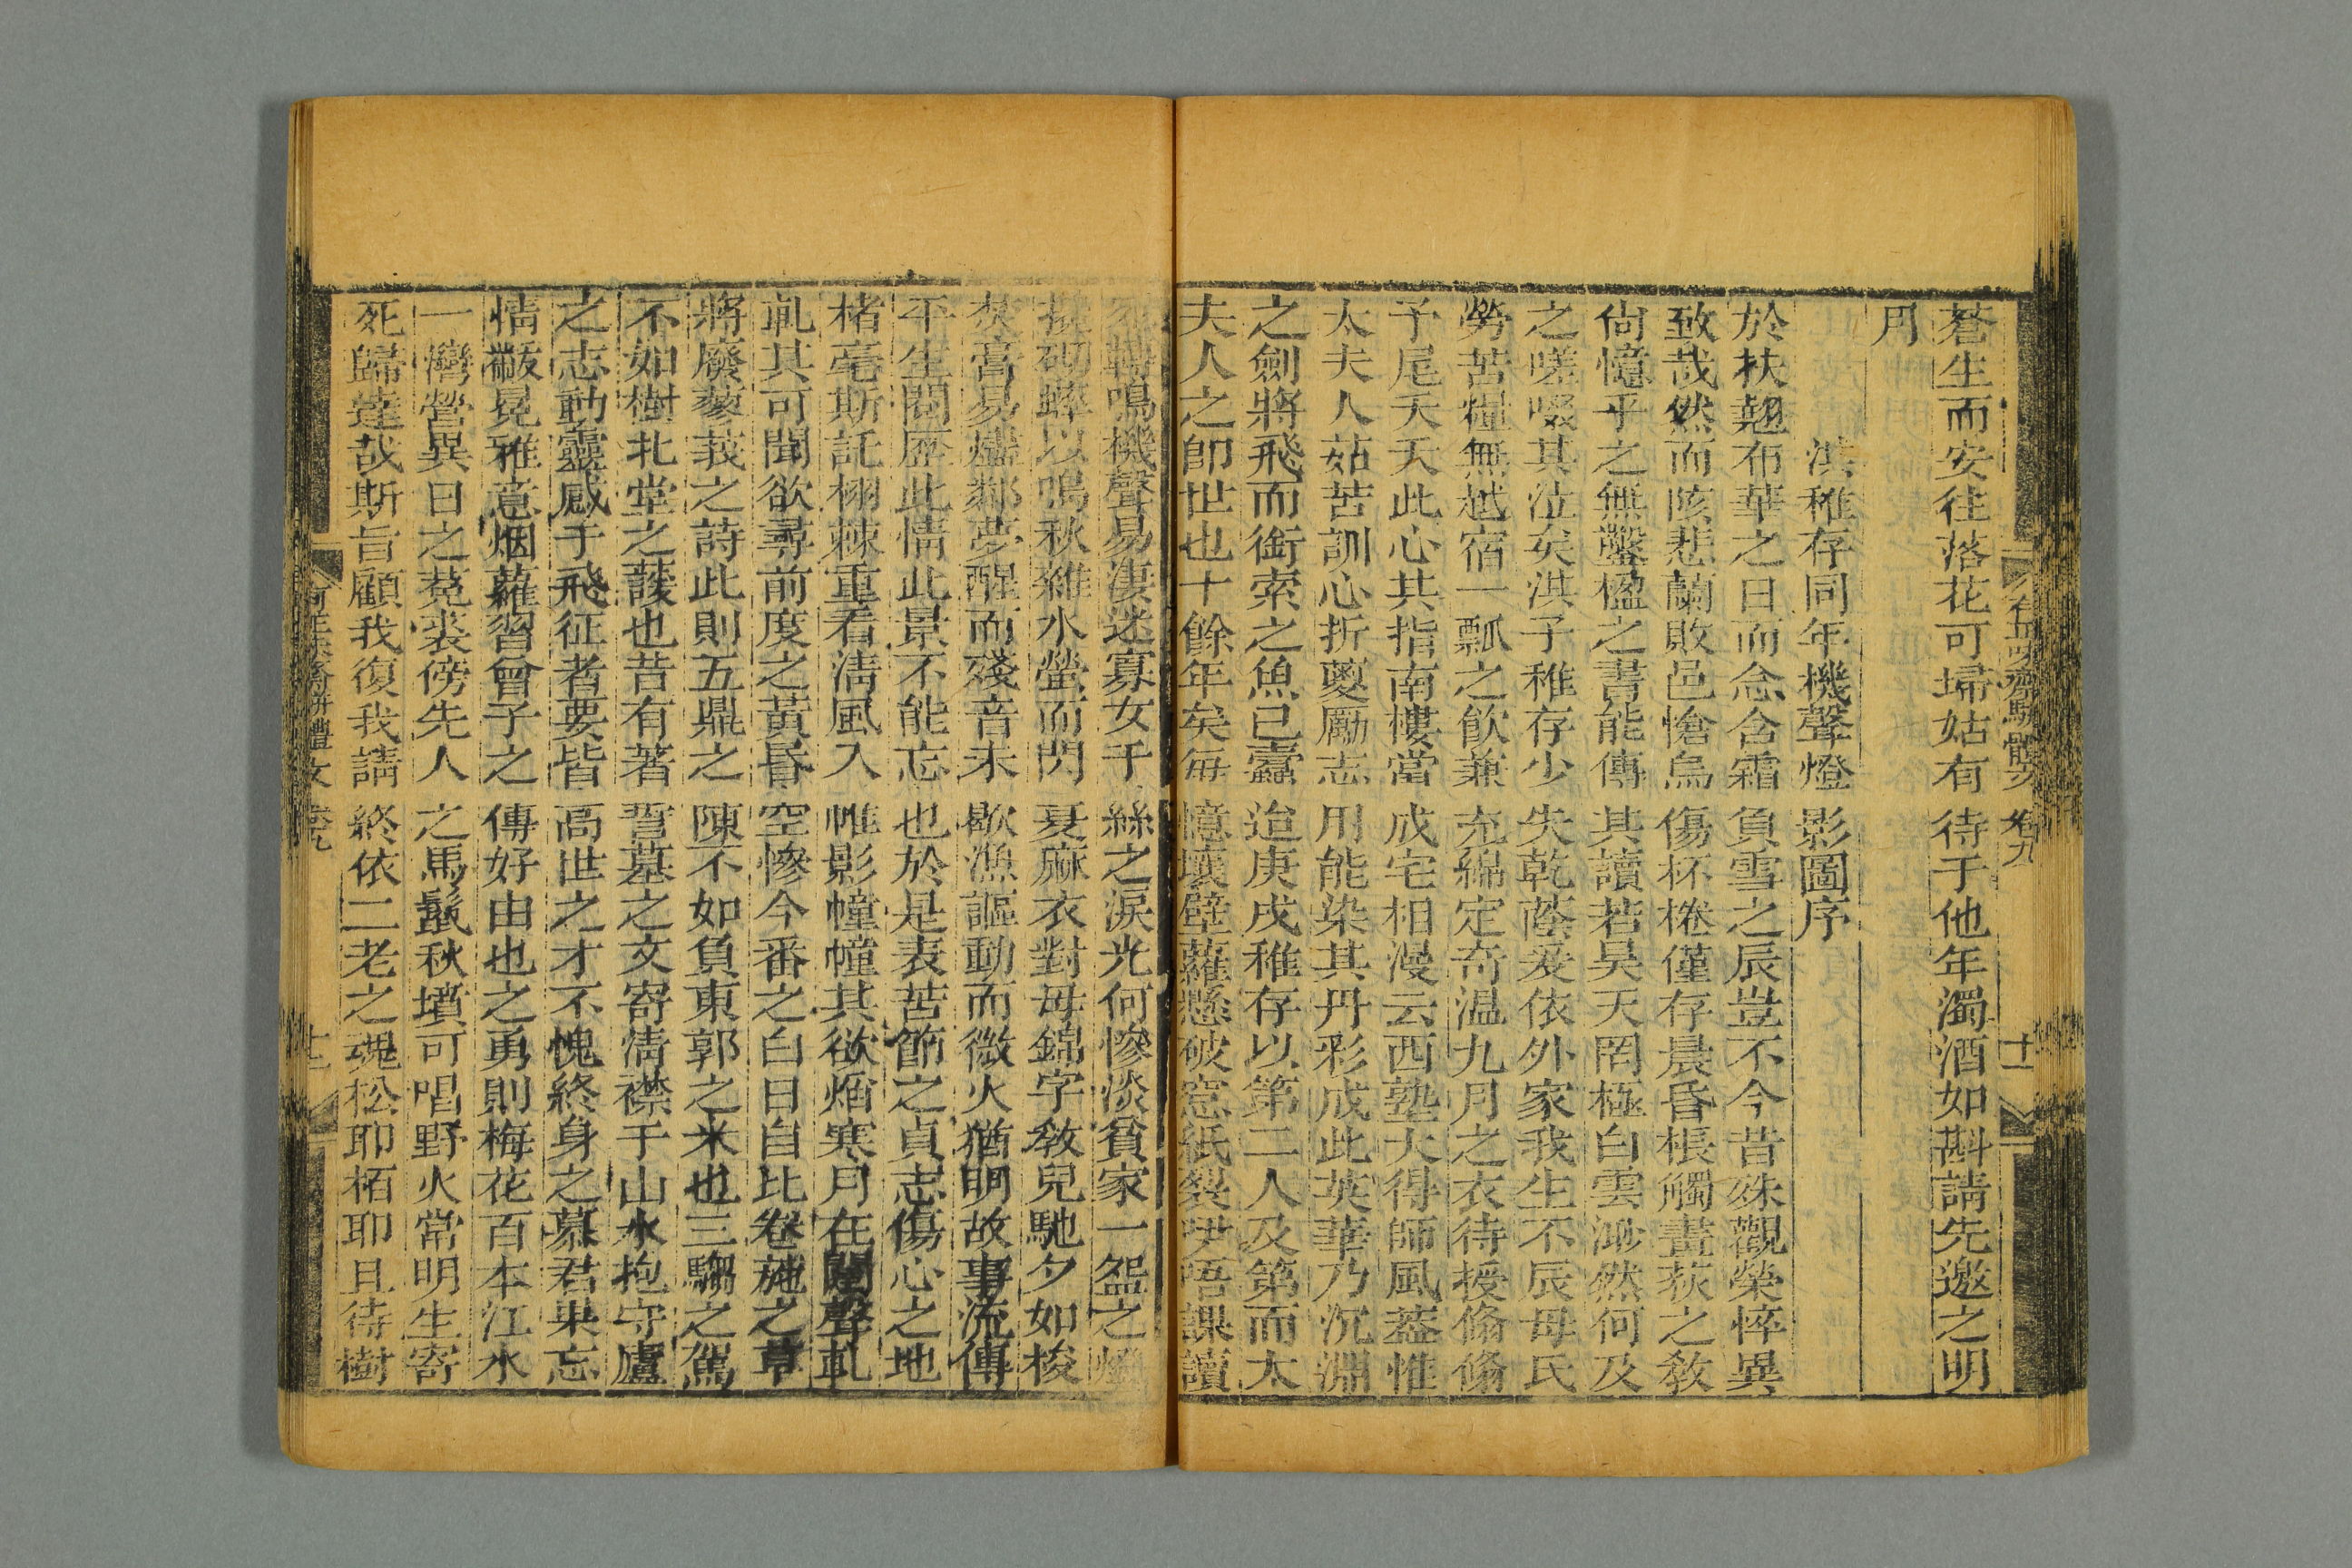 蒼生而安往落花可埽姑有待于他年濁酒如斟請先邀之明
月
洪稚存同年機聲燈影圖序
於扶翹布華之日而念含霜負雪之辰豈不今昔殊觀榮悴異
致哉然而陔悲蘭敗邑愴烏傷杯棬僅存晨昏棖觸畫荻之敎
尙憶乎之無鑿楹之書能傳其讀若昊天罔極白雲渺然何及
之嗟啜其泣矣洪子稚存少失乾蔭爰依外家我生不辰母氏
勞苦糧無越宿一瓢之飮兼充綿定奇溫九月之衣待授翛翛
予尾夭夭此心其指南樓當成宅相漫云西塾大得師風葢惟
太夫人茹苦訓心折葼勵志用能染其丹彩成此英華乃沉淵
之劍將飛而銜索之魚已蠹迨庚戌稚存以第二人及第而太
夫人之卽世也十餘年矣每憶壞壁蘿懸破窓紙裂咿唔課讀
轉鳴機聲易淒迷寡女千絲之淚光何慘淡貧家一盌之燈
砌蟀以鳴秋雜水螢而閃戛麻衣對母錦字敎兒馳夕如梭
焚膏易燼鄰夢醒而殘音未歇漁謳動而微火猶明故事流傳
平生閱歷此情此景不能忘也於是表苦節之貞志傷心之地
楮毫斯託栩棘重看淸風入帷影幢幢其欲焰寒月在闥聲軋
軋其可聞欲尋前度之黃昏空慘今番之白日自比卷葹之草
將廢蓼莪之詩此則五鼎之陳不如負東郭之米也三騶之駕
不如樹北堂之諼也昔有著誓墓之文寄淸襟于山水抱守廬
之志動靈感于飛征者要皆高世之才不愧終身之慕君果忘
情黻冕雅意烟蘿習曾子之傳好由也之勇則梅花百本江水
一灣營異日之菟裘傍先人之馬鬛秋墳可唱野火常明生寄
死歸達哉斯旨顧我復我請終依二老之魂松耶栢耶且待樹
有正味齋駢體文 卷九 十一